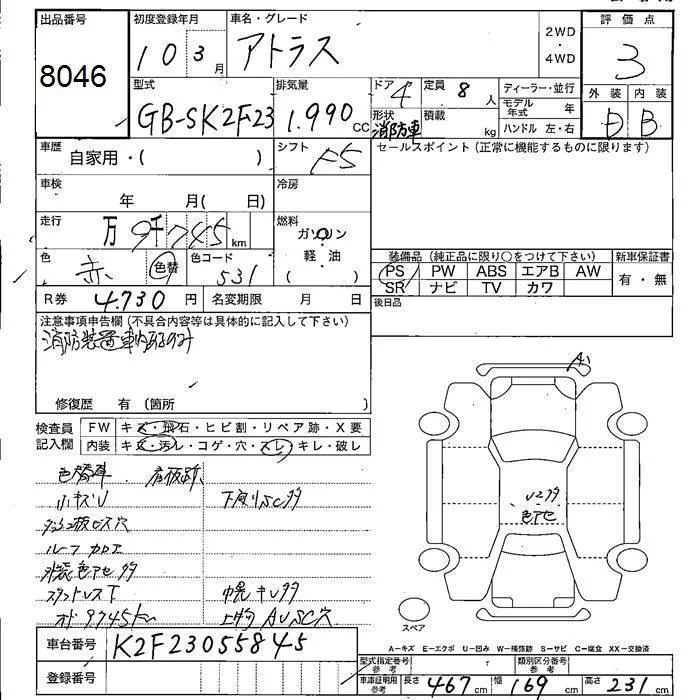 出品番号
8046
初度登録年月
10 3 月
車名・グレード
アトラス
2WD
・
4WD
評価点
3
外装 内装
D B
型式
GB-SK2F23
排気量
1.990 CC
ドア
4
定員
8 人
形状
消防車
積載
kg
ディーラー・並行
モデル年式 年
ハンドル 左・右
車歴
自家用・( )
シフト
F5
セールスポイント(正常に機能するものに限ります)
車検
年 月( 日)
冷房
走行
万 9千745 km
燃料
ガソリン
・
軽油
( )
色
赤 色替
色コード
531
装備品(純正品に限り○をつけて下さい)
PS PW ABS エアB AW
SR ナビ TV カワ
新車保証書
有・無
R券 4.730 円
名変期限 月 日
後日品
注意事項申告欄(不具合内容等は具体的に記入して下さい)
修復歴 有(箇所 )
検査員
記入欄
FW キズ・飛石・ヒビ割・リペア跡・X要
内装 キズ・汚レ・コゲ・穴・スレ・キレ・破レ
色替車
小キズU
下廻りSC多
ルーフ カロエ
外装色アセ多
幌キレ多
オド 9745km
A
U2多
色アセ
スペア
車台番号 K2F23055845
登録番号
A−キズ E−エクボ U−凹み W−補修跡 S−サビ C−腐食 XX−交換済
型式指定番号
参考
類別区分番号
参考
車庫証明用
参考
長さ 467 cm 幅 169 cm 高さ 231 cm